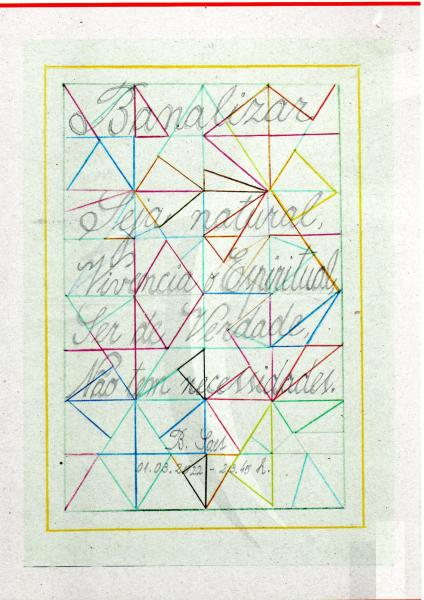 Banalizar
Seja natural,
Vivencia o Espiritual,
Ser de Verdade,
Não tem necessidades.
01.03.2022 - 23.45 h.